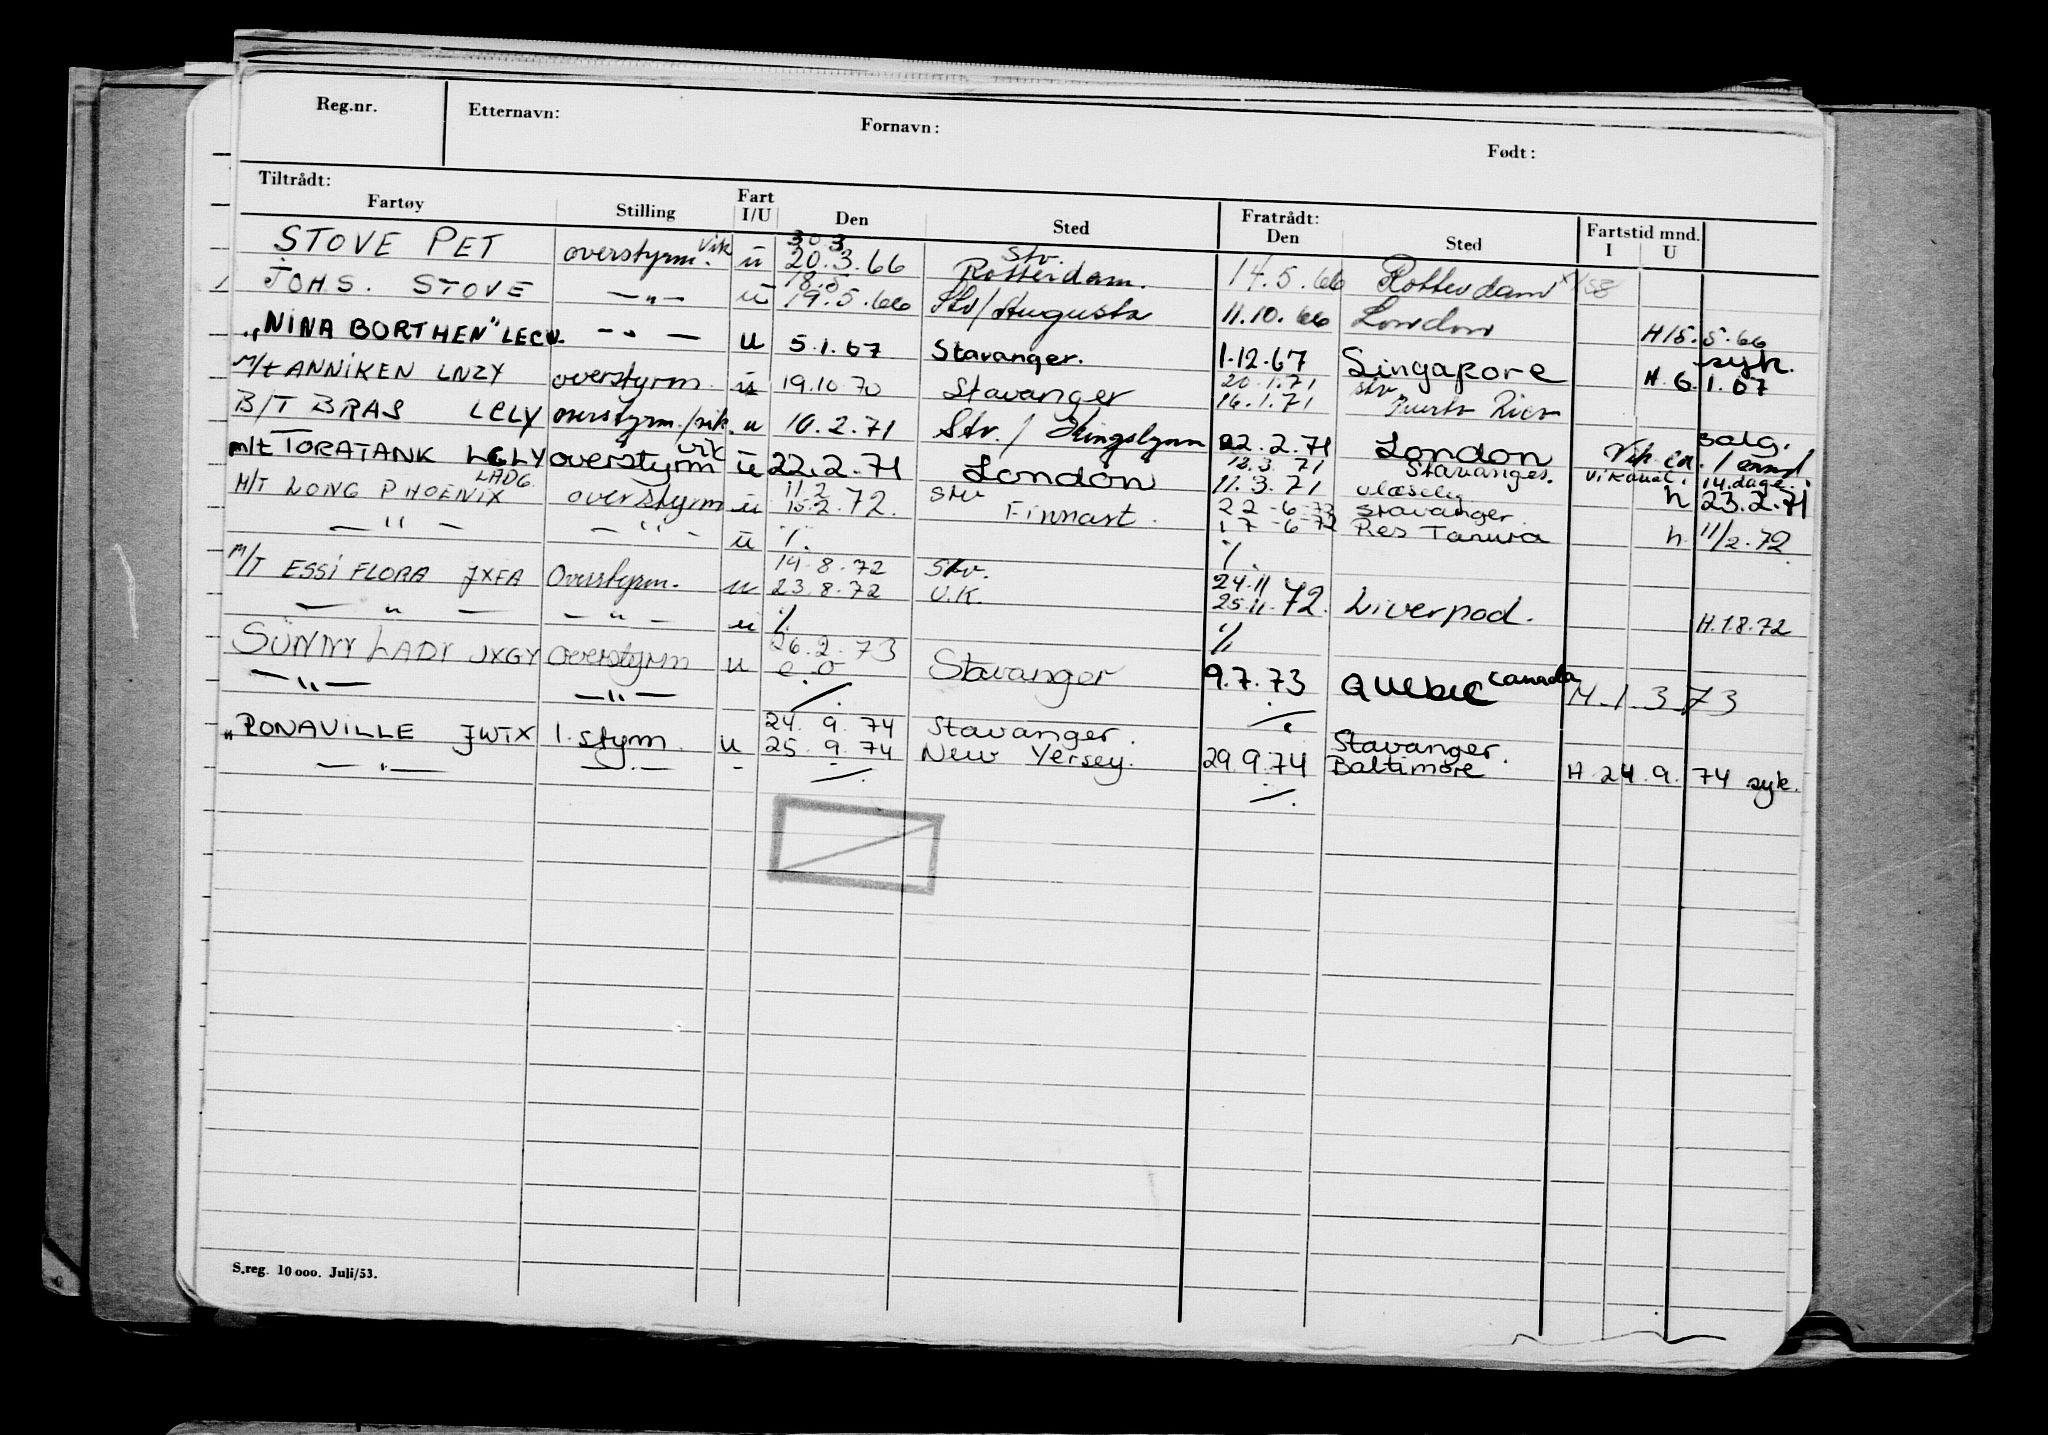 Reg.nr. Etternavn: Fornavn: Født:
Tiltrådt: Fratrådt:
Fartøy Stilling Fart I/U Den Sted Den Sted Fartstid mnd. I U
STOVE PET overstyrm. vik u 30 3 20.3.66 Stv. Rotterdam. 14.5.66 Rotterdam
JOHS. STOVE —"— u 18.5 19.5.66 Stv/Augusta 11.10.66 London H 15.5.66
"NINA BORTHEN" LECV. —"— u 5.1.67 Stavanger. 1.12.67 Singapore H. 6.1.67 syk.
M/t ANNIKEN LNZY overstyrm. u 19.10.70 Stavanger 20.1.71 16.1.71 Stv Puerto Rico
B/T BRAS LELY overstyrm./vik. u 10.2.71 Stv. / Kingslynn 22.2.71 London Vik ca. 1 mnd salg.
m/t TORATANK LGLY overstyrm vik u 22.2.71 London 12.3.71 11.3.71 Stavanger. uleselig Vikariat 14. dage. h 23.2.71
M/T LONG PHOENIX LADG. overstyrm u 11.2 15.2.72. Stv Finnart. 22-6-72 17-6-72 Stavanger Ras Tanura h. 11/2.72
—"— —"— u ./. ./.
M/T ESSI FLORA JXFA Overstyrm. u 14.8.72 23.8.72 Stv. U.K. 24.11 25.11.72. Liverpool. H.1.8.72
—"— —"— u ./. ./.
SUNNY LADY JXGY overstyrm u 26.2.73 e.o Stavanger 9.7.73 QUEBEC Canada H.1.3.73
—"— —"— ./. ./.
"RONAVILLE JWTX 1. styrm. u 24.9.74 25.9.74 Stavanger. New Yersey. 29.9.74 Stavanger. Baltimore H 24.9.74 syk.
—"— —.— - ./. ./.
S.reg. 10 000. Juli/53.